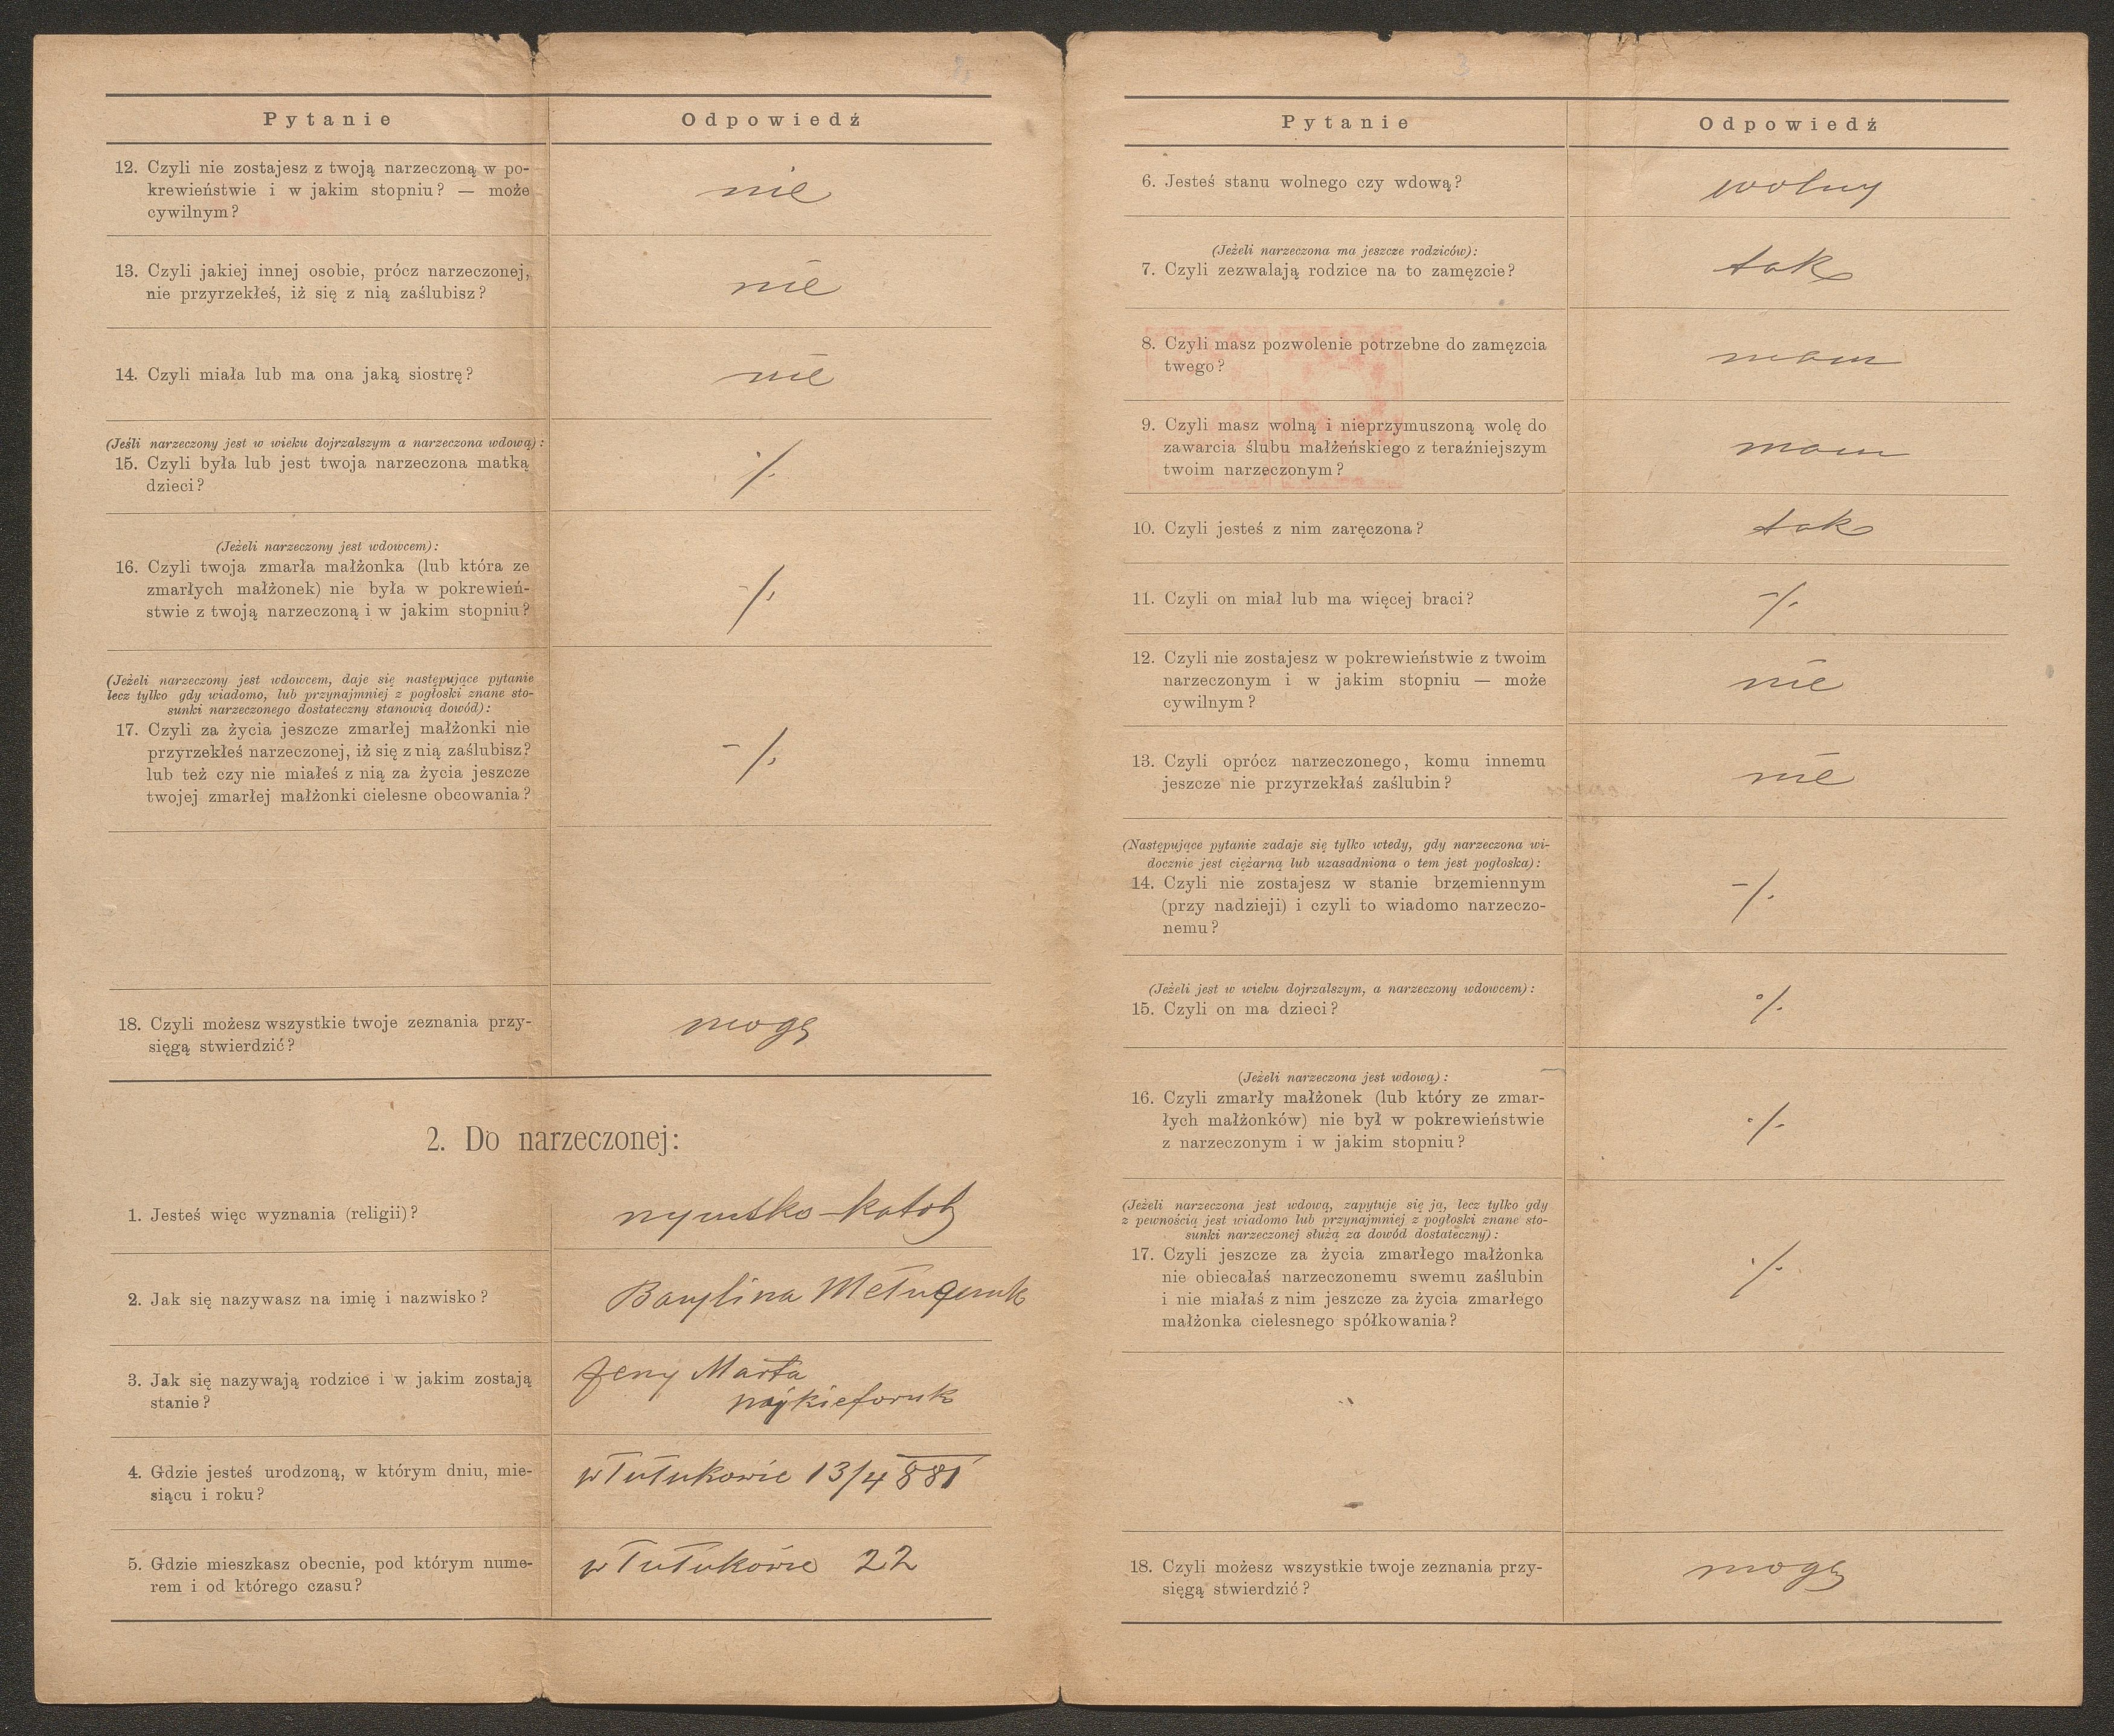 Pytanie Odpowiedź
12. Czyli nie zostajesz z twoją narzeczoną w po-
krewieństwie i w jakim stopniu? — może
cywilnym?
nie
13. Czyli jakiej innej osobie, prócz narzeczonej,
nie przyrzekłeś, iż się z nią zaślubisz?
nie
14. Czyli miała lub ma ona jaką siostrę?
nie
(Jeśli narzeczony jest w wieku dojrzalszym a narzeczona wdową):
15. Czyli była lub jest twoja narzeczona matką
dzieci?
·/·
(Jeżeli narzeczony jest wdowcem):
16. Czyli twoja zmarła małżonka (lub która ze
zmarłych małżonek) nie była w pokrewień-
stwie z twoją narzeczoną i w jakim stopniu?
-/·
(Jeżeli narzeczony jest wdowcem, daje się następujące pytanie
lecz tylko gdy wiadomo, lub przynajmniej z pogłoski znane sto-
sunki narzeczonego dostateczny stanowią dowód):
17. Czyli za życia jeszcze zmarłej małżonki nie
przyrzekłeś narzeczonej, iż się z nią zaślubisz?
lub też czy nie miałeś z nią za życia jeszcze
twojej zmarłej małżonki cielesne obcowania?
-/·
18. Czyli możesz wszystkie twoje zeznania przy-
sięgą stwierdzić?
mogę
2. Do narzeczonej:
1. Jesteś więc wyznania (religii)?
katol
2. Jak się nazywasz na imię i nazwisko?
3. Jak się nazywają rodzice i w jakim zostają
stanie?
Marta
4. Gdzie jesteś urodzoną, w którym dniu, mie-
siącu i roku?
w Tułukowie 13/4 881
5. Gdzie mieszkasz obecnie, pod którym nume-
rem i od którego czasu?
w Tułukowie 22
Pytanie Odpowiedź
6. Jesteś stanu wolnego czy wdową?
wolny
(Jeżeli narzeczona ma jeszcze rodziców):
7. Czyli zezwalają rodzice na to zamęzcie?
tak
8. Czyli masz pozwolenie potrzebne do zamęzcia
twego?
mam
9. Czyli masz wolną i nieprzymuszoną wolę do
zawarcia ślubu małżeńskiego z teraźniejszym
twoim narzęczonym?
mam
10. Czyli jesteś z nim zaręczona?
tak
11. Czyli on miał lub ma więcej braci?
-/·
12. Czyli nie zostajesz w pokrewieństwie z twoim
narzeczonym i w jakim stopniu — może
cywilnym?
nie
13. Czyli oprócz narzeczonego, komu innemu
jeszcze nie przyrzekłaś zaślubin?
nie
(Następujące pytanie zadaje się tylko wtedy, gdy narzeczona wi-
docznie jest ciężarną lub uzasadniona o tem jest pogłoska):
14. Czyli nie zostajesz w stanie brzemiennym
(przy nadzieji) i czyli to wiadomo narzeczo-
nemu?
-/·
(Jeżeli jest w wieku dojrzalszym, a narzeczony wdowcem):
15. Czyli on ma dzieci?
·/·
(Jeżeli narzeczona jest wdową):
16. Czyli zmarły małżonek (lub który ze zmar-
łych małżonków) nie był w pokrewieństwie
z narzeczonym i w jakim stopniu?
·/·
(Jeżeli narzeczona jest wdową, zapytuje się ją, lecz tylko gdy
z pewnością jest wiadomo lub przynajmniej z pogłoski znane sto-
sunki narzeczonej służą za dowód dostateczny):
17. Czyli jeszcze za życia zmarłego małżonka
nie obiecałaś narzeczonemu swemu zaślubin
i nie miałaś z nim jeszcze za życia zmarłego
małżonka cielesnego spółkowania?
·/·
18. Czyli możesz wszystkie twoje zeznania przy-
sięgą stwierdzić?
mogę